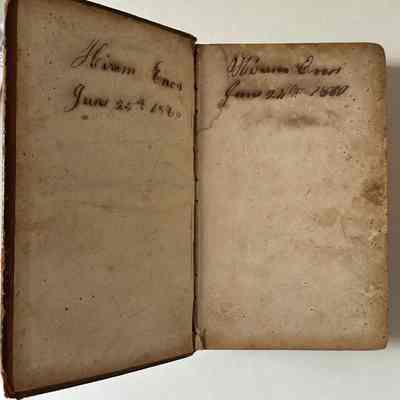 Hiram Enos
June 25th 1880
Hiram Enos
June 24th 1880